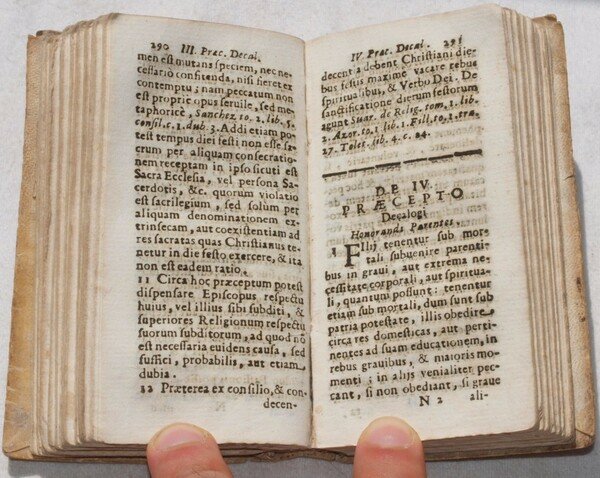 290 III. Præc. Decal.
men est mutans speciem, nec ne-
cessario confitenda, nisi fieret ex
contemptu; nam peccatum non
est proprie opus seruile, sed me-
taphoricè, Sanchez to. 2. lib. 5.
consil. c. 1. dub. 3. Addi etiam po-
test tempus diei festi non esse sa-
crum per aliquam consecratio-
nem receptam in ipso sicuti est
Sacra Ecclesia, vel persona Sa-
cerdotis, &c. quorum violatio
est sacrilegium, sed solum per
aliquam denominationem ex-
trinsecam, aut coexistentiam ad
res sacratas quas Christianus te-
netur in die festo exercere, & ita
non est eadem ratio.
11 Circa hoc præceptum potest
dispensare Episcopus respectu
huius, vel illius sibi subditi, &
superiores Religionum respectu
suorum subditorum, ad quod nō
est necessaria euidens causa, sed
suffici, probabilis, aut etiam
dubia.
12 Præterea ex consilio, & con-
decen-
IV. Præc. Decal. 291
decentia debent Christiani die-
bus festis maxime vacare rebus
spiritualibus, & Verbo Dei. De
sanctificatione dierum festorum
agunt Suar. de Relig. tom. 1. lib.
2. Azor. to. 1. lib. 1. Fill. to. 1. tra.
27. Tolet. lib. 4. c. 24.
DE IV.
PRÆCEPTO
Decalogi
Honorandi Parentes.
1 FIlij tenentur sub mor-
tali subuenire parenti-
bus in graui, aut extrema ne-
cessitate corporali, aut spiritua-
li, quantum possunt: tenentur
etiam sub mortali, dum sunt sub
patria potestate, illis obedire
circa res domesticas, aut perti-
nentes ad suam educationem, in
rebus grauibus, & maioris mo-
menti; in alijs venialiter pec-
cant, si non obediant, si graue
N 2 ali-